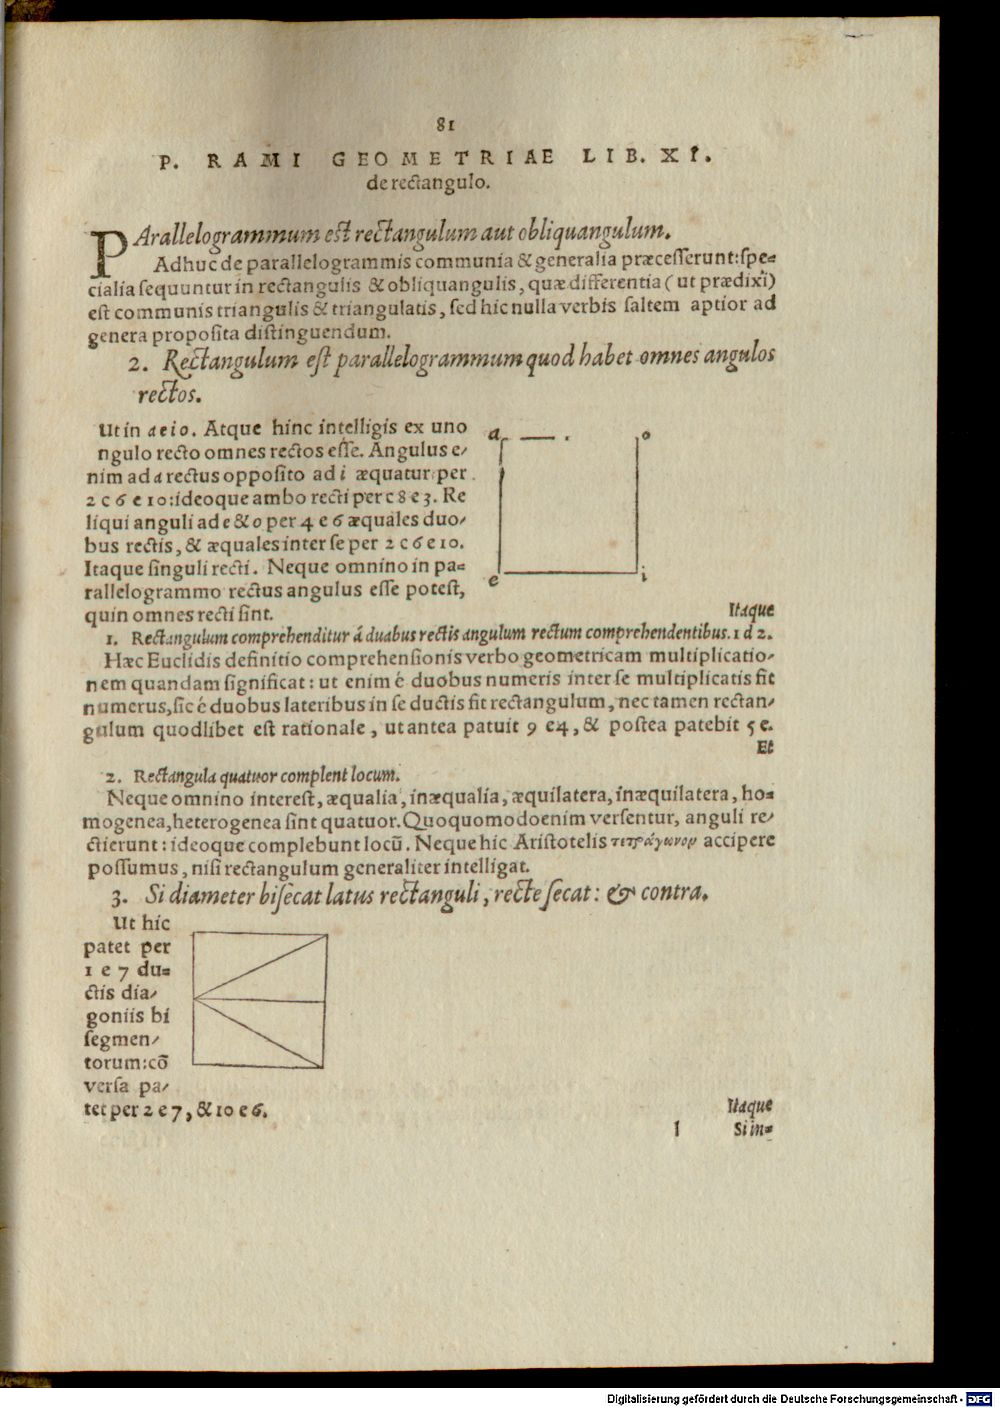 81
P. RAMI GEOMETRIAE LIB. XI.
de rectangulo.
PArallelogrammum est rectangulum aut obliquangulum.
Adhuc de parallelogrammis communia & generalia præcesserunt: spe=
cialia sequuntur in rectangulis & obliquangulis, quæ differentia (ut prædixi)
est communis triangulis & triangulatis, sed hic nulla verbis saltem aptior ad
genera proposita distinguendum.
2. Rectangulum est parallelogrammum quod habet omnes angulos
rectos.
Ut in aeio. Atque hinc intelligis ex uno
ngulo recto omnes rectos esse. Angulus e/
nim ad a rectus opposito ad i æquatur per
2 c 6 e 10: ideoque ambo recti per c 8 e 3. Re
liqui anguli ad e & o per 4 e 6 æquales duo/
bus rectis, & æquales inter se per 2 c 6 e 10.
Itaque singuli recti. Neque omnino in pa=
rallelogrammo rectus angulus esse potest,
quin omnes recti sint.
a o
e i
Itaque
1. Rectangulum comprehenditur á duabus rectis angulum rectum comprehendentibus. 1 d 2.
Hæc Euclidis definitio comprehensionis verbo geometricam multiplicatio/
nem quandam significat: ut enim é duobus numeris inter se multiplicatis fit
numerus, sic é duobus lateribus in se ductis fit rectangulum, nec tamen rectan/
gulum quodlibet est rationale, ut antea patuit 9 e 4, & postea patebit 5 e.
Et
2. Rectangula quatuor complent locum.
Neque omnino interest, æqualia, inæqualia, æquilatera, inæquilatera, ho=
mogenea, heterogenea sint quatuor. Quoquomodo enim versentur, anguli re/
cti erunt: ideoque complebunt locū. Neque hic Aristotelis τετράγωνον accipere
possumus, nisi rectangulum generaliter intelligat.
3. Si diameter bisecat latus rectanguli, recte secat: & contra.
Ut hic
patet per
1 e 7 du=
ctis dia/
goniis bi
segmen/
torum: cō
versa pa/
tet per 2 e 7, & 10 e 6.
Itaque
l Si in=
Digitalisierung gefördert durch die Deutsche Forschungsgemeinschaft - DFG